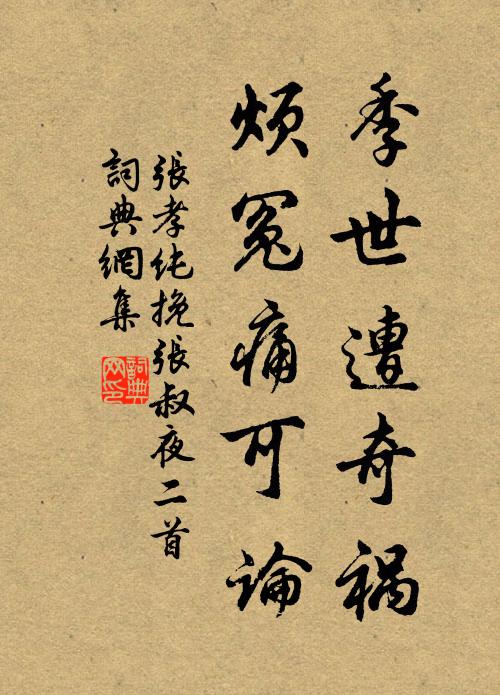 季世遭奇祸
烦冤痛可論
張孝纯挽張叔夜二首
詞典網集
詞典网印